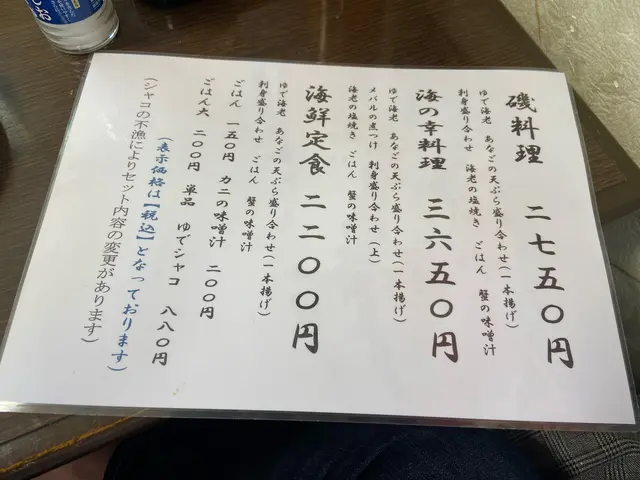 磯料理 二七五〇円
ゆで海老 あなごの天ぷら盛り合わせ(一本揚げ)
刺身盛り合わせ 海老の塩焼き ごはん 蟹の味噌汁
海の幸料理 三六五〇円
ゆで海老 あなごの天ぷら盛り合わせ(一本揚げ)
メバルの煮つけ 刺身盛り合わせ(上)
海老の塩焼き ごはん 蟹の味噌汁
海鮮定食 二二〇〇円
ゆで海老 あなごの天ぷら盛り合わせ(一本揚げ)
刺身盛り合わせ ごはん 蟹の味噌汁
ごはん 一五〇円 カニの味噌汁 二〇〇円
ごはん大 二〇〇円 単品 ゆでシャコ 八八〇円
(表示価格は【税込】となっております)
(シャコの不漁によりセット内容の変更があります)